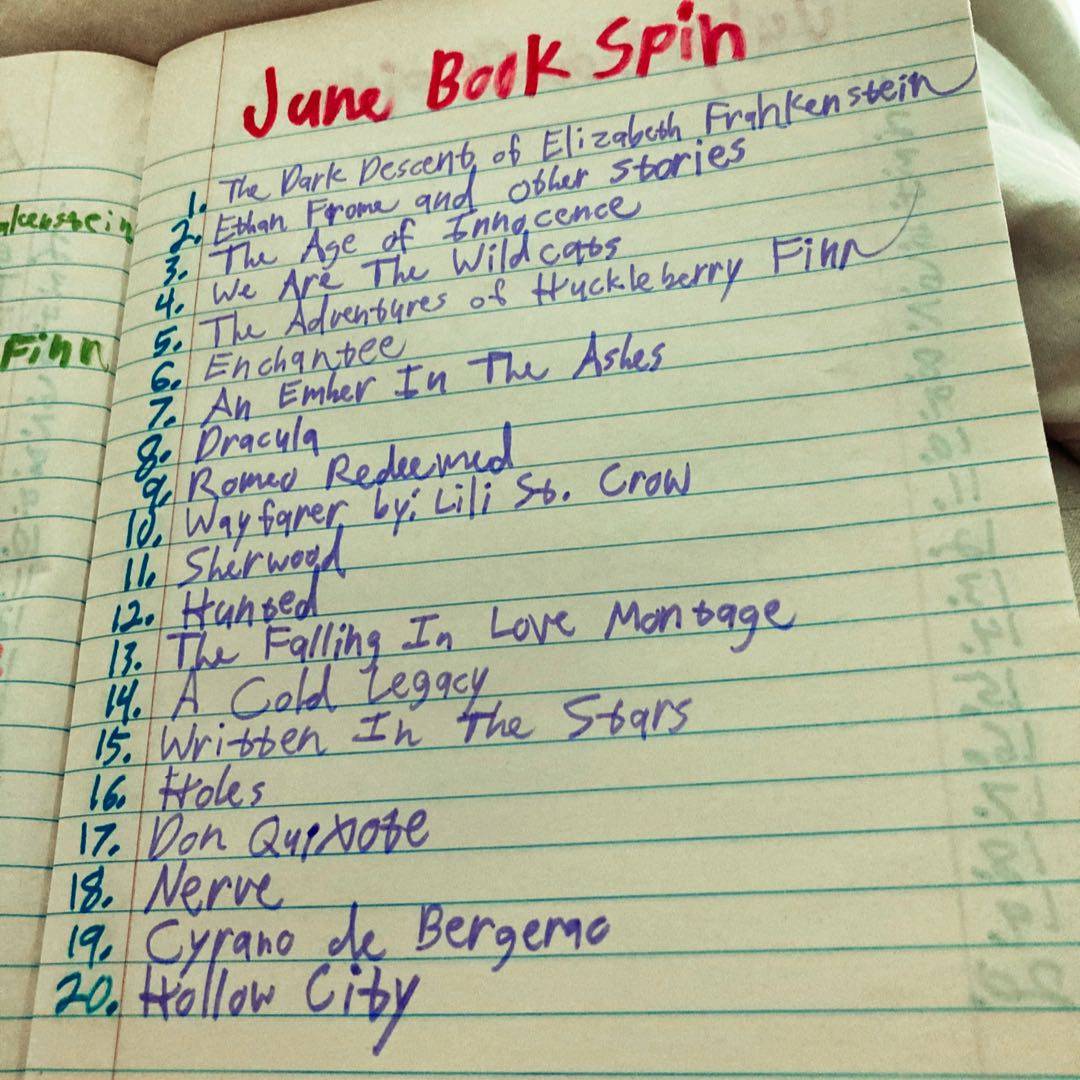 June Book Spin
1. The Dark Descent of Elizabeth Frankenstein
2. Ethan Frome and other stories
3. The Age of Innocence
4. We Are The Wildcats
5. The Adventures of Huckleberry Finn
6. Enchantee
7. An Ember In The Ashes
8. Dracula
9. Romeo Redeemed
10. Wayfarer by: Lili St. Crow
11. Sherwood
12. Hunted
13. The Falling In Love Montage
14. A Cold Legacy
15. Written In The Stars
16. Holes
17. Don Quixote
18. Nerve
19. Cyrano de Bergerac
20. Hollow City
nkenstein
Finn